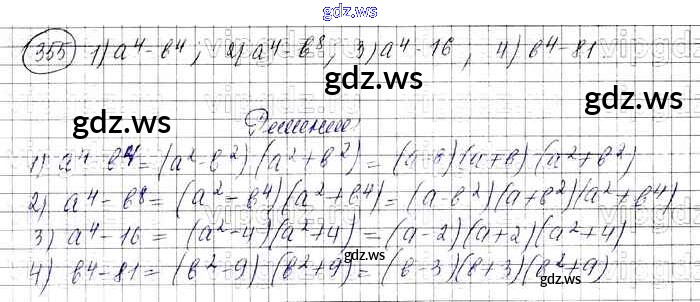 gdz.ws
355 1) a⁴ - b⁴; 2) a⁴ - b⁸; 3) a⁴ - 16; 4) b⁴ - 81
gdz.ws
gdz.ws
gdz.ws Решение
1) a⁴ - b⁴ = (a² - b²)(a² + b²) = (a - b)(a + b)(a² + b²)
2) a⁴ - b⁸ = (a² - b⁴)(a² + b⁴) = (a - b²)(a + b²)(a² + b⁴)
3) a⁴ - 16 = (a² - 4)(a² + 4) = (a - 2)(a + 2)(a² + 4)
gdz.ws
4) b⁴ - 81 = (b² - 9)(b² + 9) = (b - 3)(b + 3)(b² + 9)
gdz.ws